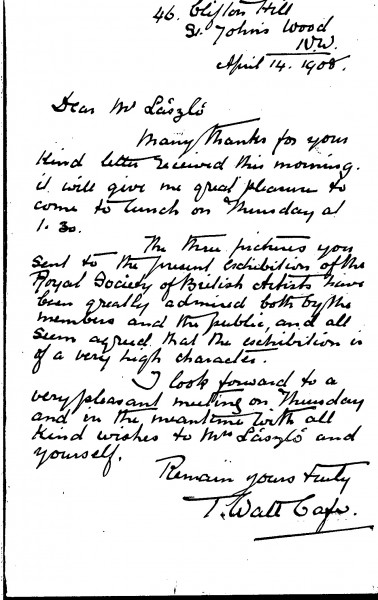 46. Clifton Hill
St. Johns Wood
N.W.
April 14. 1908.
Dear Mr László
Many thanks for your
kind letter received this morning.
it will give me great pleasure to
come to lunch on Thursday at
1.30.
The three pictures you
sent to the present exhibition of the
Royal Society of British Artists have
been greatly admired both by the
members and the public, and all
seem agreed that the exhibition is
of a very high character.
I look forward to a
very pleasant meeting on Thursday
and in the meantime with all
kind wishes to Mrs László and
yourself.
Remain yours truly
T. Watt Cafe.